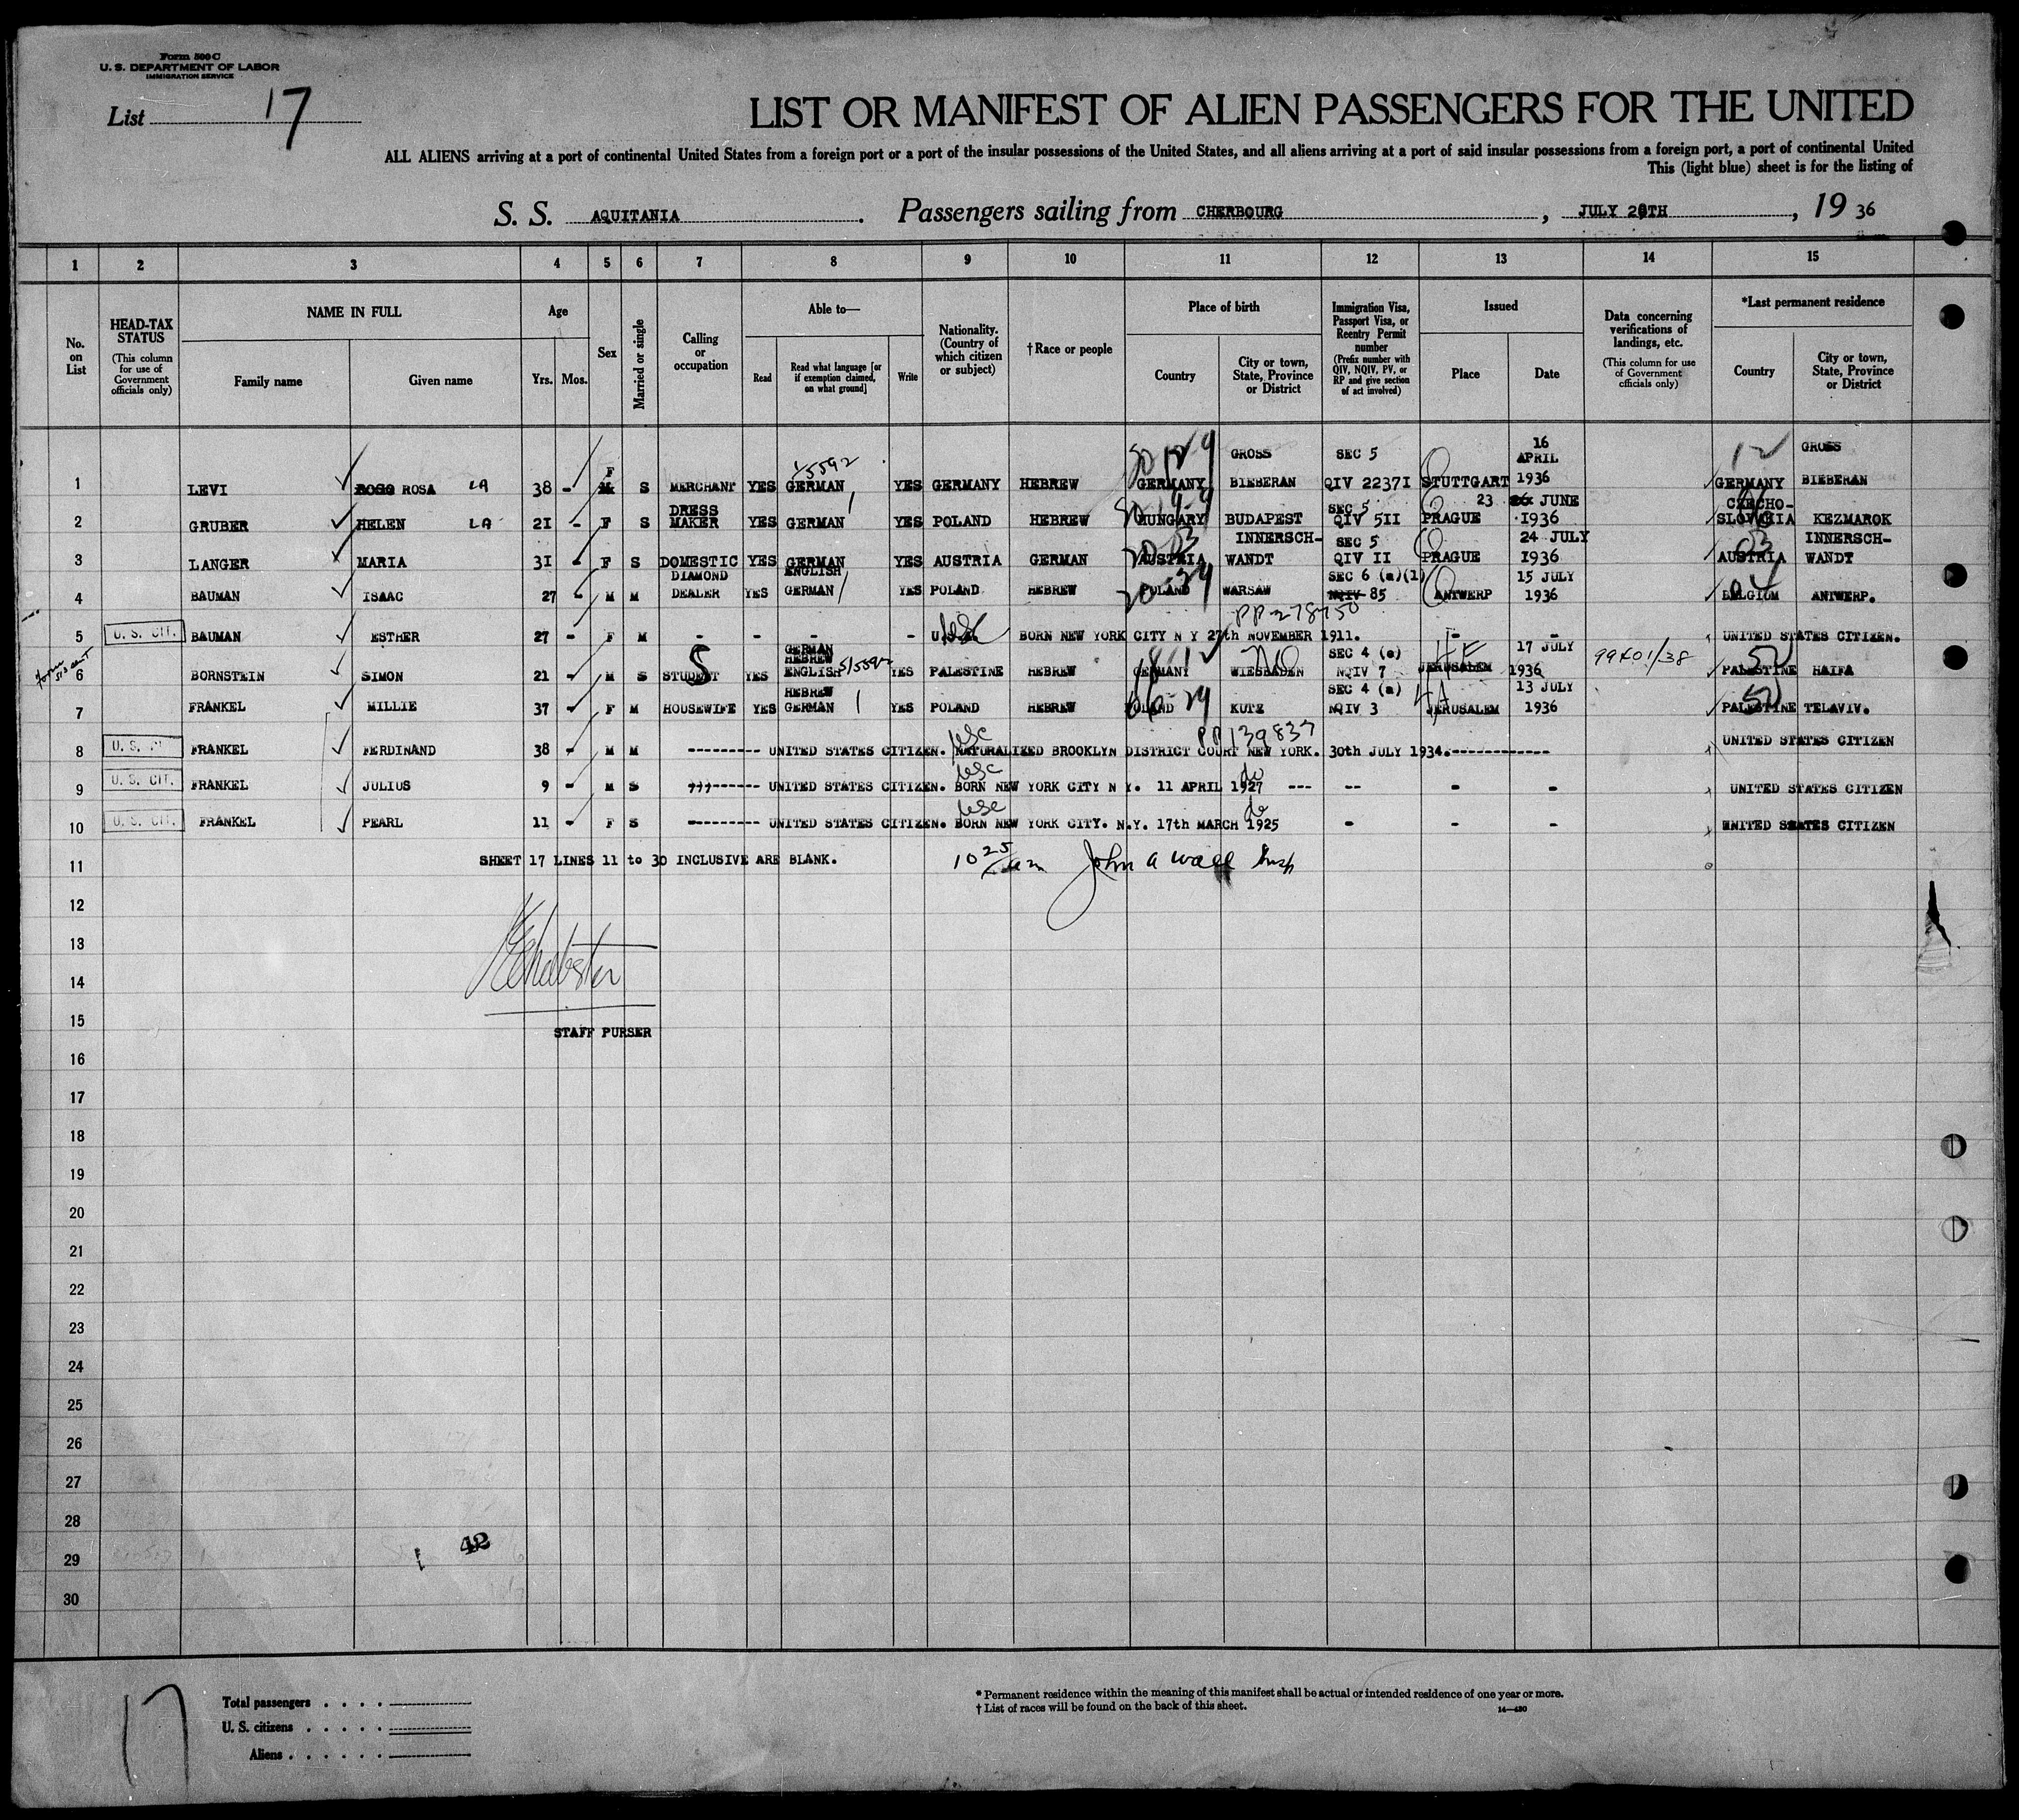 Form 500 C
U. S. DEPARTMENT OF LABOR
IMMIGRATION SERVICE
List 17
LIST OR MANIFEST OF ALIEN PASSENGERS FOR THE UNITED
ALL ALIENS arriving at a port of continental United States from a foreign port or a port of the insular possessions of the United States, and all aliens arriving at a port of said insular possessions from a foreign port, a port of continental United
This (light blue) sheet is for the listing of
S. S. AQUITANIA . Passengers sailing from CHERBOURG , JULY 20TH , 19 36
1 2 3 4 5 6 7 8 9 10 11 12 13 14 15
No. on List
HEAD-TAX STATUS (This column for use of Government officials only)
NAME IN FULL Family name Given name
Age Yrs. Mos.
Sex
Married or single
Calling or occupation
Able to— Read Read what language [or if exemption claimed, on what ground] Write
Nationality. (Country of which citizen or subject)
†Race or people
Place of birth Country City or town, State, Province or District
Immigration Visa, Passport Visa, or Reentry Permit number (Prefix number with QIV, NQIV, PV, or RP and give section of act involved)
Issued Place Date
Data concerning verifications of landings, etc. (This column for use of Government officials only)
*Last permanent residence Country City or town, State, Province or District
1 LEVI ROSA LA 38 - F S MERCHANT YES GERMAN YES GERMANY HEBREW GERMANY GROSS BIEBERAN SEC 5 QIV 22371 STUTTGART 16 APRIL 1936 GERMANY GROSS BIEBERAN
2 GRUBER HELEN LA 21 - F S DRESS MAKER YES GERMAN YES POLAND HEBREW HUNGARY BUDAPEST SEC 5 QIV 511 PRAGUE 23 JUNE 1936 CZECHO-SLOVAKIA KEZMAROK
3 LANGER MARIA 31 - F S DOMESTIC YES GERMAN YES AUSTRIA GERMAN AUSTRIA INNERSCH-WANDT SEC 5 QIV II PRAGUE 24 JULY 1936 AUSTRIA INNERSCH-WANDT
4 BAUMAN ISAAC 27 - M M DIAMOND DEALER YES ENGLISH GERMAN YES POLAND HEBREW POLAND WARSAW SEC 6 (a)(1) NQIV 85 ANTWERP 15 JULY 1936 BELGIUM ANTWERP.
5 U. S. CIT. BAUMAN ESTHER 27 - F M - - - - U.S.A. BORN NEW YORK CITY N Y 27th NOVEMBER 1911. PP 278750 - - UNITED STATES CITIZEN.
6 BORNSTEIN SIMON 21 - M S STUDENT YES GERMAN HEBREW ENGLISH YES PALESTINE HEBREW GERMANY WIESBADEN SEC 4 (e) NQIV 7 JERUSALEM 17 JULY 1936 PALESTINE HAIFA
7 FRANKEL MILLIE 37 - F M HOUSEWIFE YES HEBREW GERMAN YES POLAND HEBREW POLAND KUTZ SEC 4 (a) NQIV 3 JERUSALEM 13 JULY 1936 PALESTINE TELAVIV.
8 U. S. CIT. FRANKEL FERDINAND 38 - M M ---------- UNITED STATES CITIZEN. NATURALIZED BROOKLYN DISTRICT COURT NEW YORK. 30th JULY 1934.------------- PP 139837 UNITED STATES CITIZEN
9 U. S. CIT. FRANKEL JULIUS 9 - M S )))------- UNITED STATES CITIZEN. BORN NEW YORK CITY N Y. 11 APRIL 1927 --- -- - - UNITED STATES CITIZEN
10 U. S. CIT. FRANKEL PEARL 11 - F S ---------- UNITED STATES CITIZEN. BORN NEW YORK CITY. N.Y. 17th MARCH 1925 - - - UNITED STATES CITIZEN
11 SHEET 17 LINES 11 to 30 INCLUSIVE ARE BLANK. 10 25 am John A Wall Insp
12
13
14
15
STAFF PURSER
16
17
18
19
20
21
22
23
24
25
26
27
28
29 42
30
17
Total passengers . . . .
U. S. citizens . . . . .
Aliens . . . . . .
* Permanent residence within the meaning of this manifest shall be actual or intended residence of one year or more.
† List of races will be found on the back of this sheet.
14—430